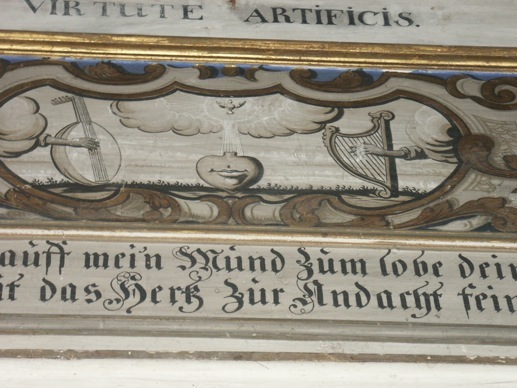 VIRTUTE ARTIFICIS.
auff mein Mund zum lobe dein
ist das Hertz zur Andacht fein